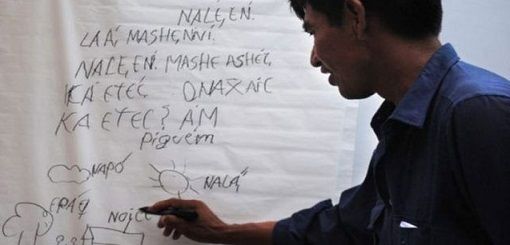 NALE,EŃ.
LAÁ, MASHE,NNI.
NALE,EŃ. MASHE ASHET,
KÁ ETEC ONAXAIC
KA ETEC? ÁM
Piguem
NAPÓ
NALA,
EPAQ